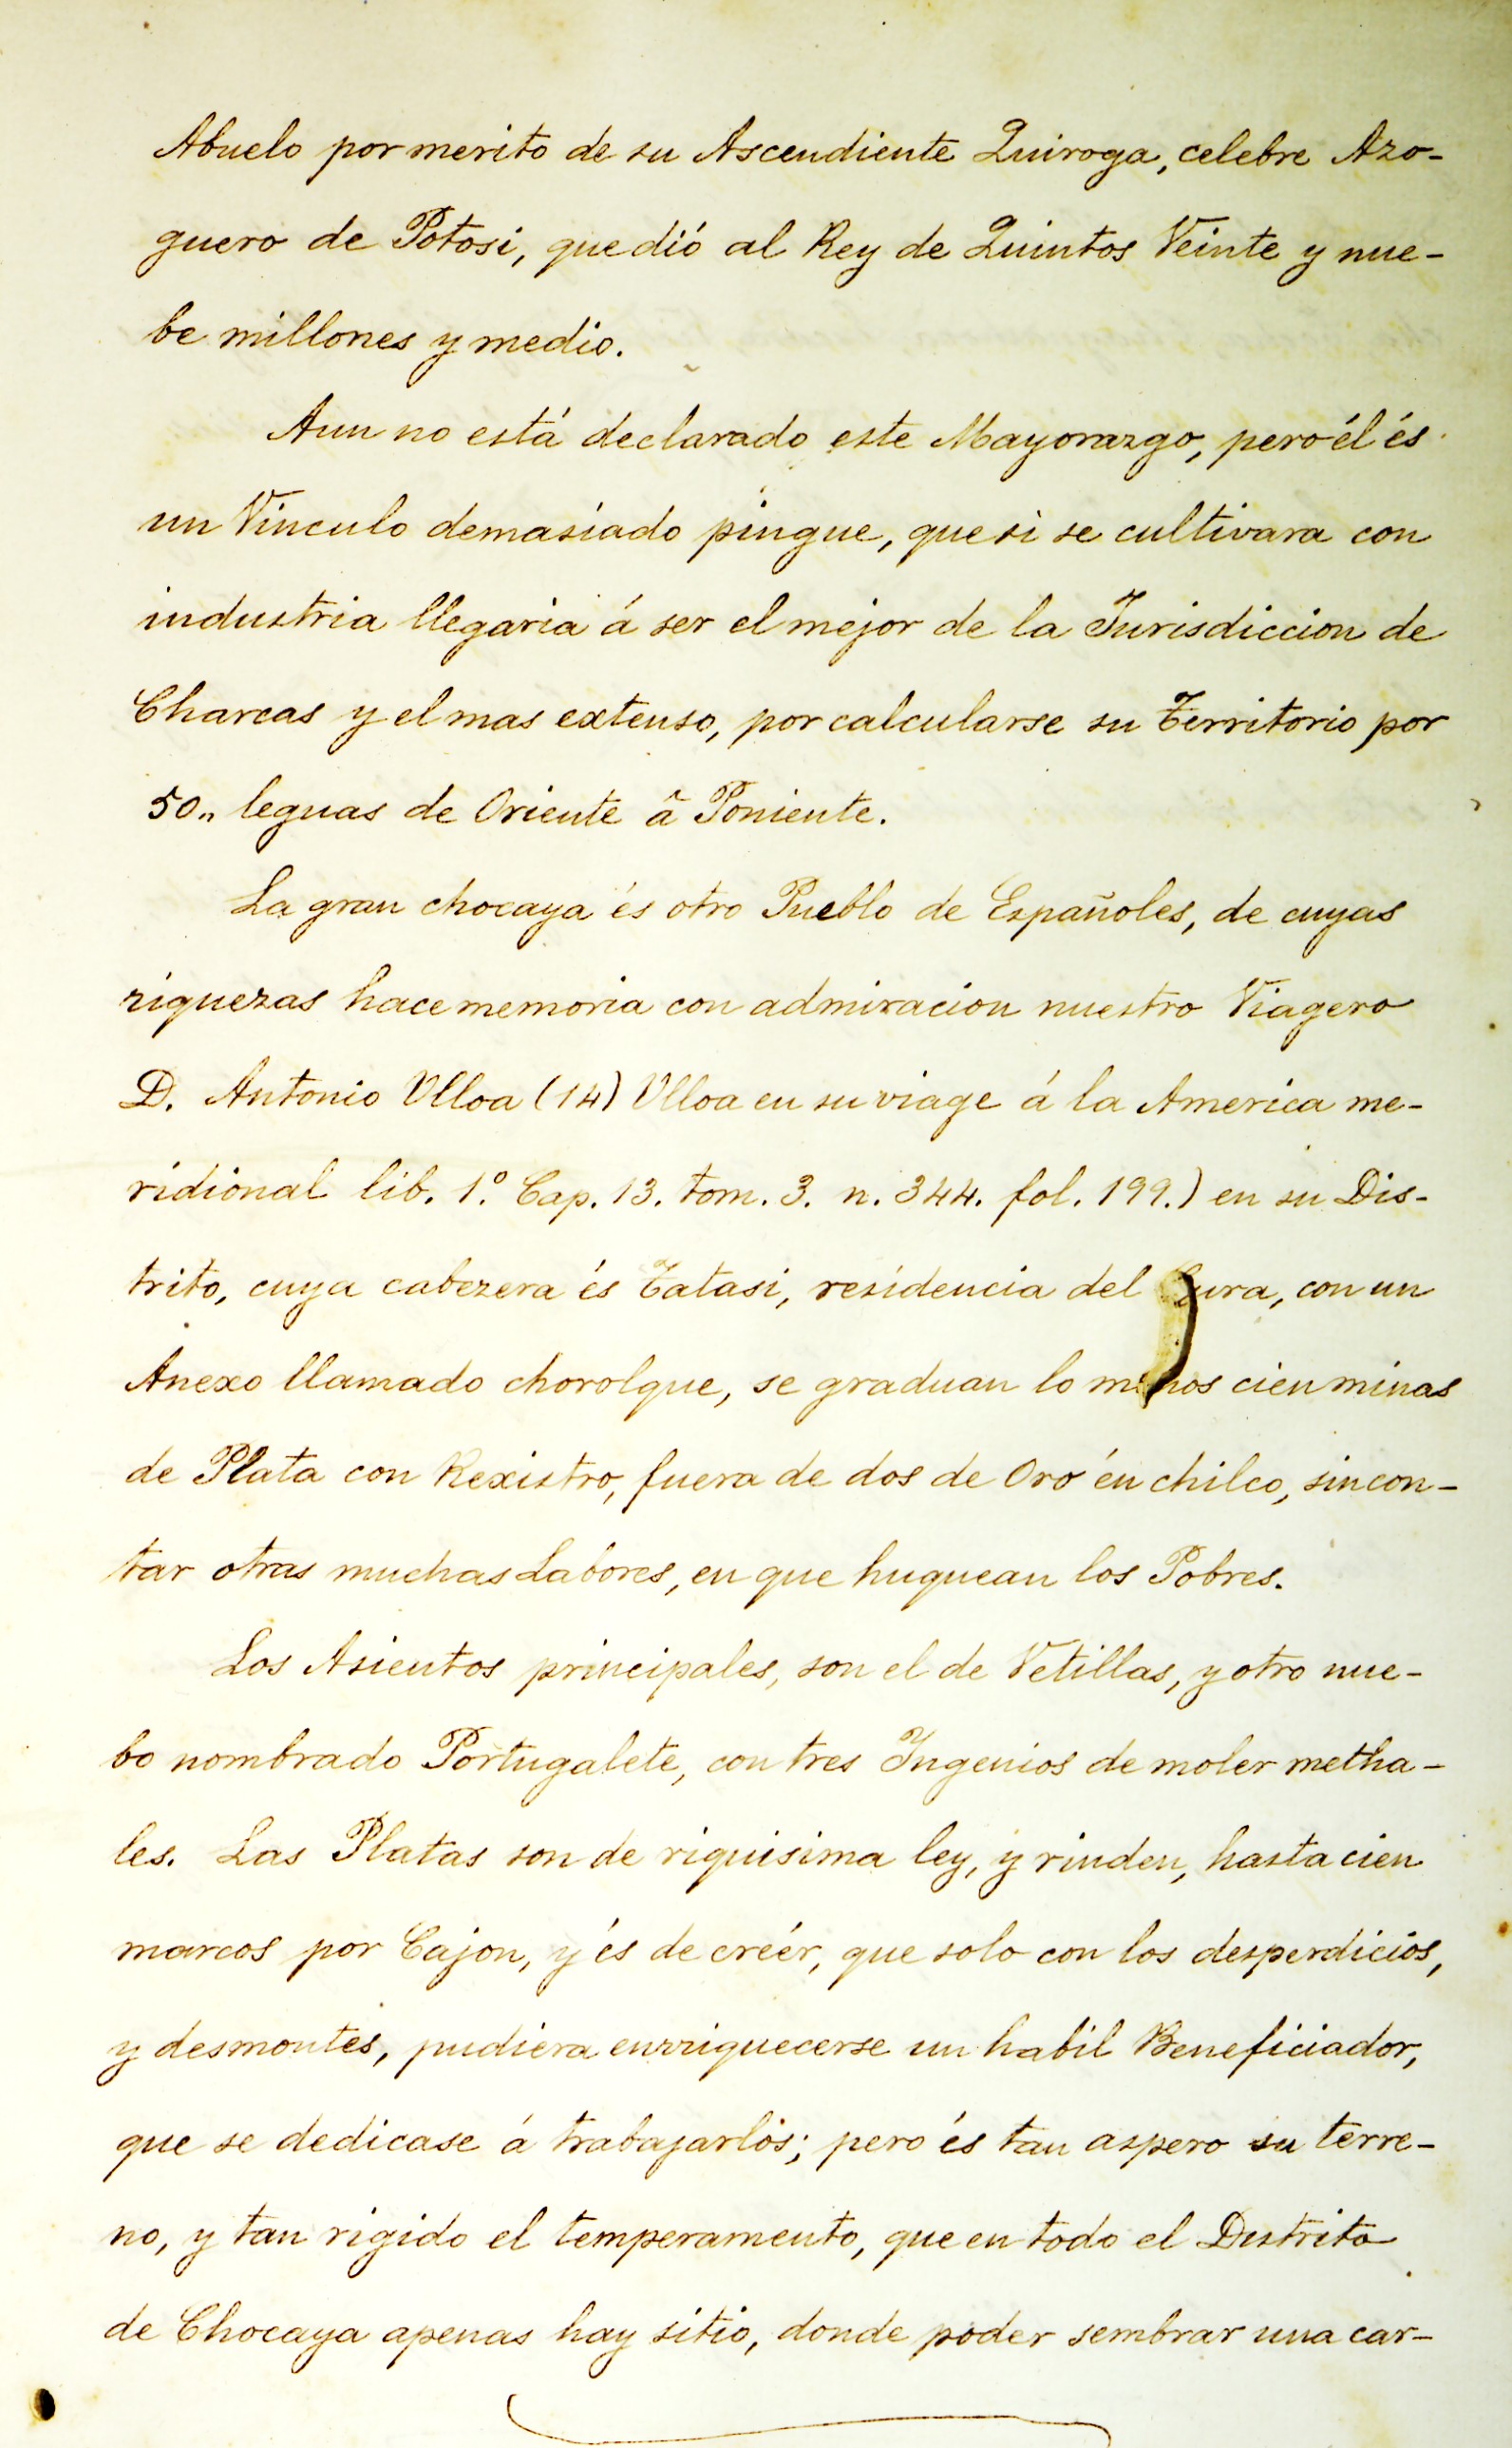 Abuelo por merito de su Ascendiente Quiroga, celebre Azo-
guero de Potosi, que dió al Rey de Quintos Veinte y nue-
be millones y medio.
Aun no está declarado este Mayorazgo, pero él és
un Vinculo demasiado pingue, que si se cultivara con
industria llegaria á ser el mejor de la Jurisdiccion de
Charcas y el mas extenso, por calcularse su Territorio por
50,, leguas de Oriente ã Poniente.
La gran chocaya és otro Pueblo de Españoles, de cuyas
riquezas hace memoria con admiracion nuestro Viagero
D. Antonio Ulloa (14) Ulloa en su viage á la America me-
ridional lib. 1.º Cap. 13. tom. 3. n. 344. fol. 199.) en su Dis-
trito, cuya cabezera és Tatasi, residencia del Cura, con un
Anexo llamado chorolque, se graduan lo menos cien minas
de Plata con Rexistro, fuera de dos de Oro én chilco, sin con-
tar otras muchas Labores, en que huquean los Pobres.
Los Asientos principales, son el de Vetillas, y otro nue-
bo nombrado Portugalete, con tres Yngenios de moler metha-
les. Las Platas son de riquisima ley, y rinden, hasta cien
marcos por Cajon, y és de creér, que solo con los desperdicios,
y desmontes, pudiera enrriquecerse un habil Beneficiador,
que se dedicase á trabajarlos; pero és tan aspero su terre-
no, y tan rigido el temperamento, que en todo el Distrito
de Chocaya apenas hay sitio, donde poder sembrar una car-